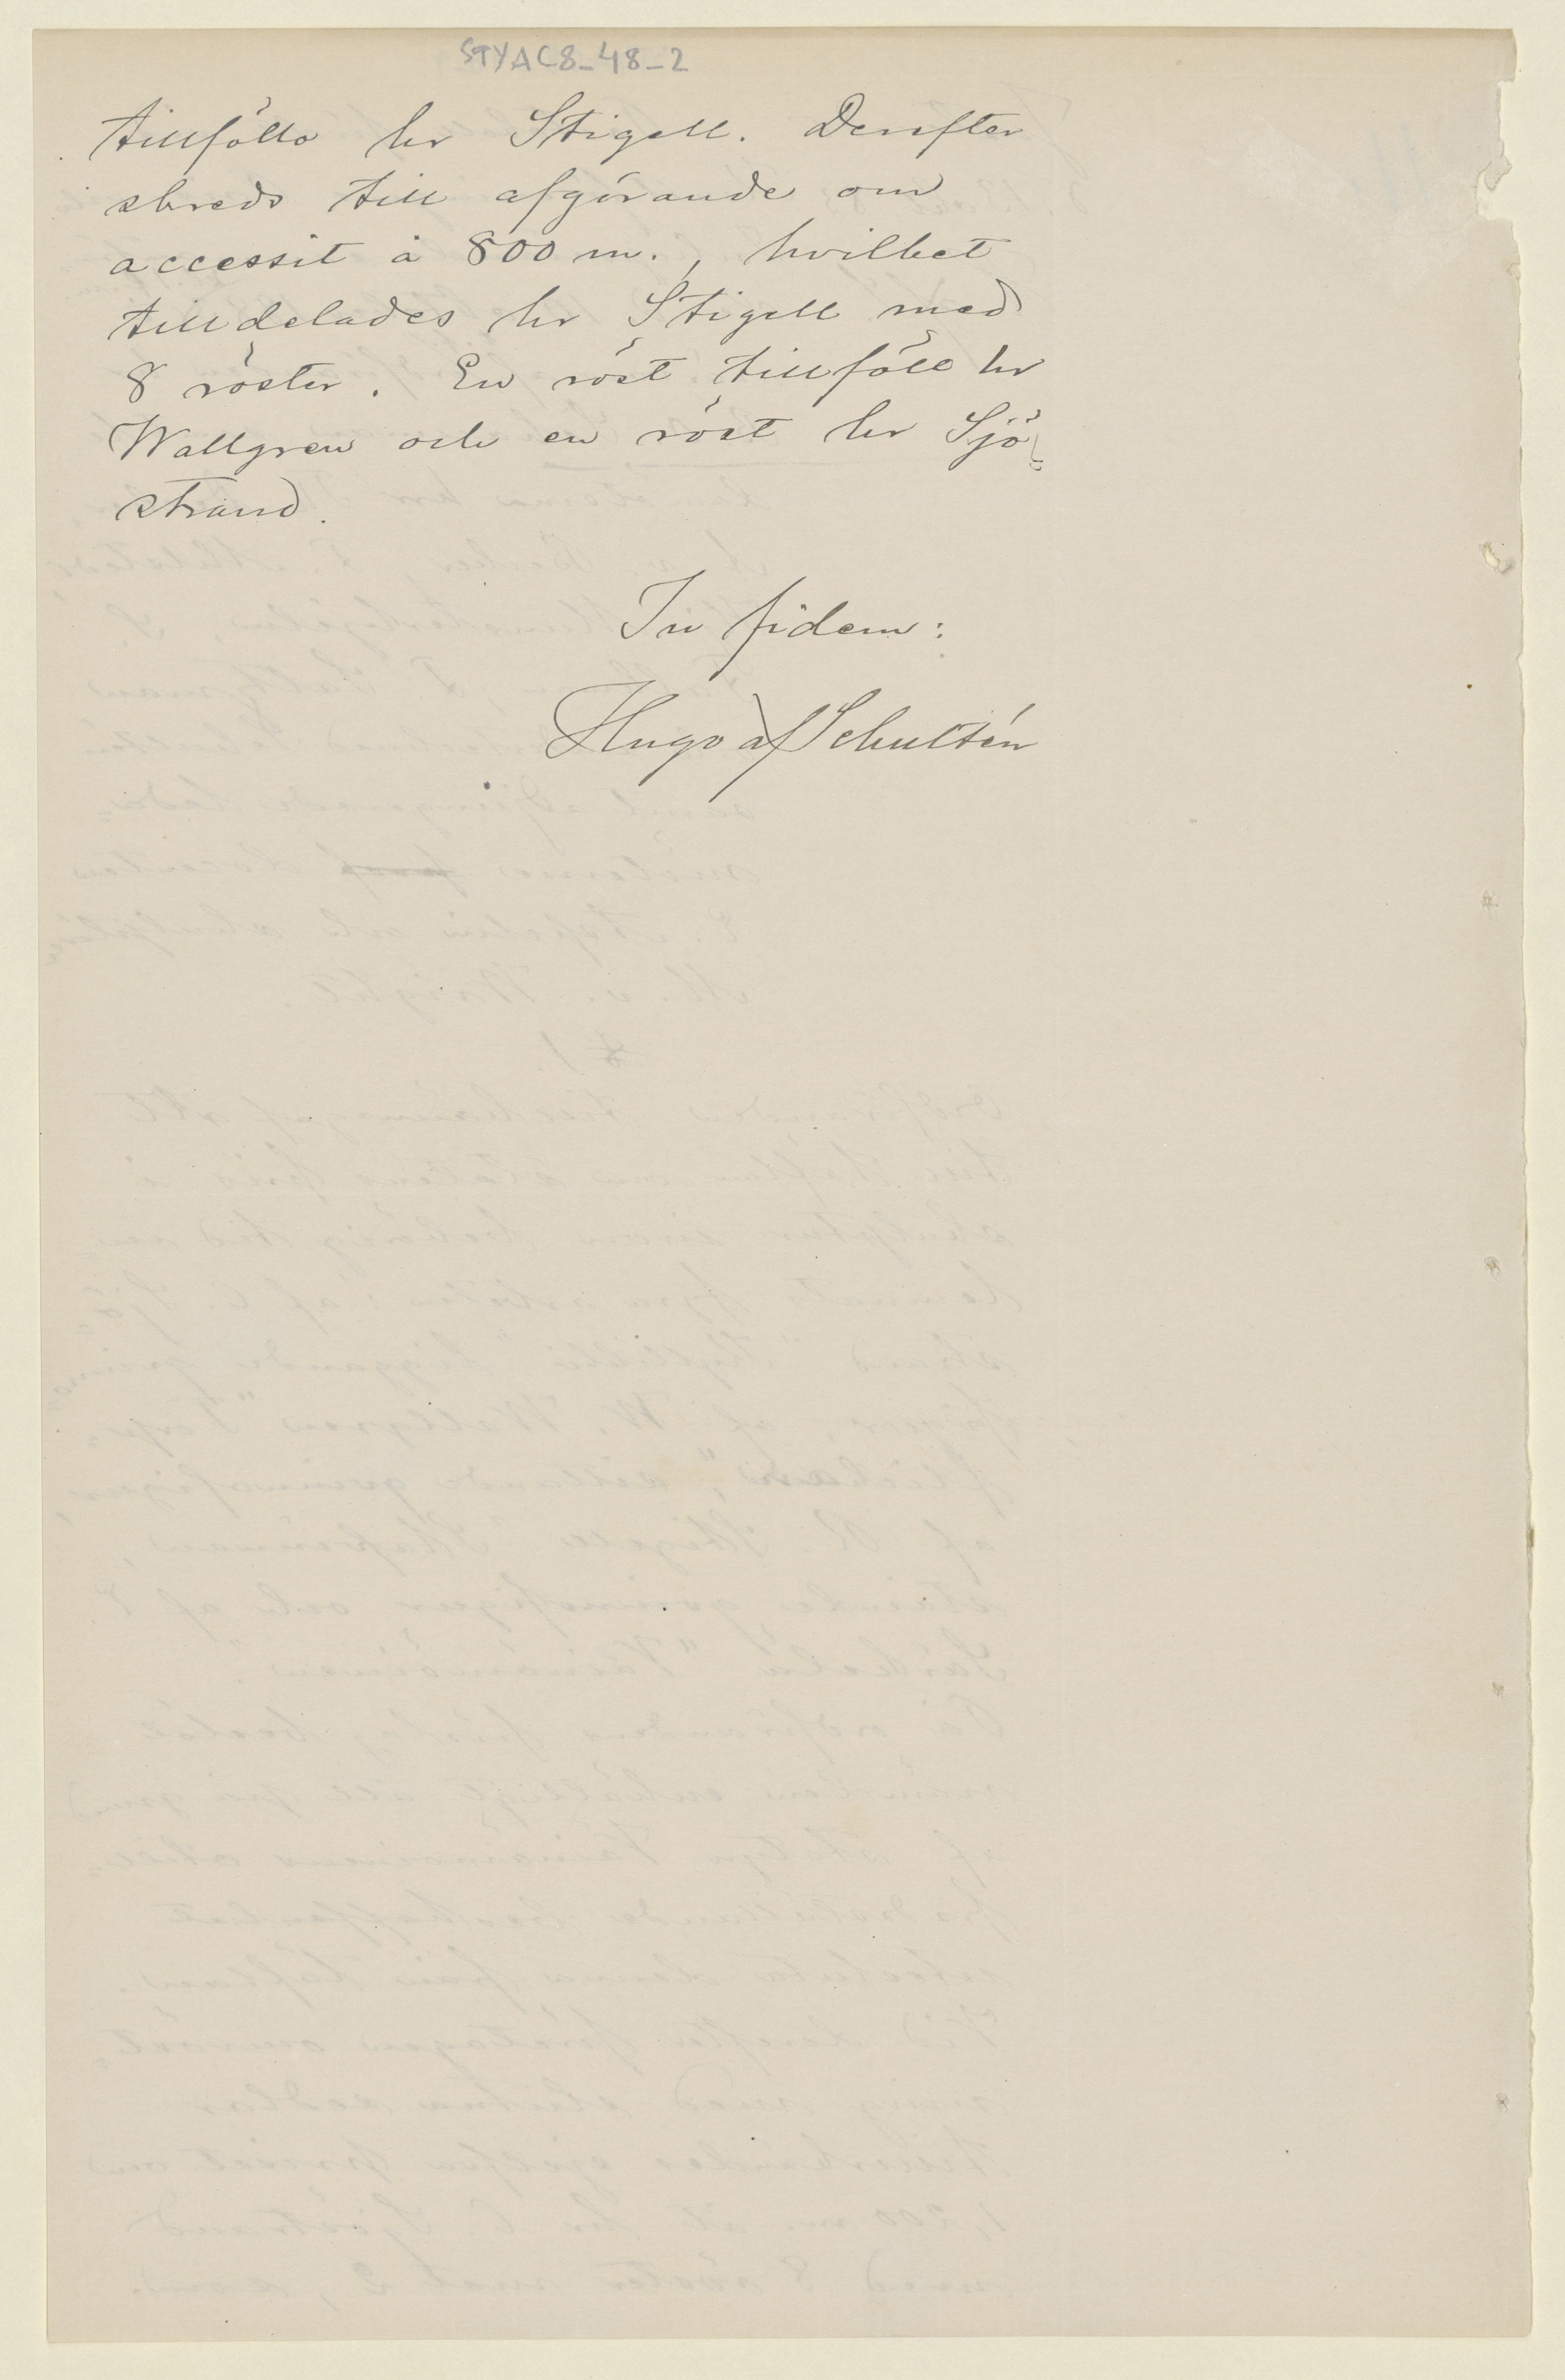 STYAC8_48_2
tillföllo hr Stigell. Derefter
skreds till afgörande om
accessit à 800 m., hvilket
tilldelades hr Stigell med
8 röster. En röst tillföll hr
Wallgren och en röst hr Sjö-
strand.
In fidem:
Hugo af Schultén